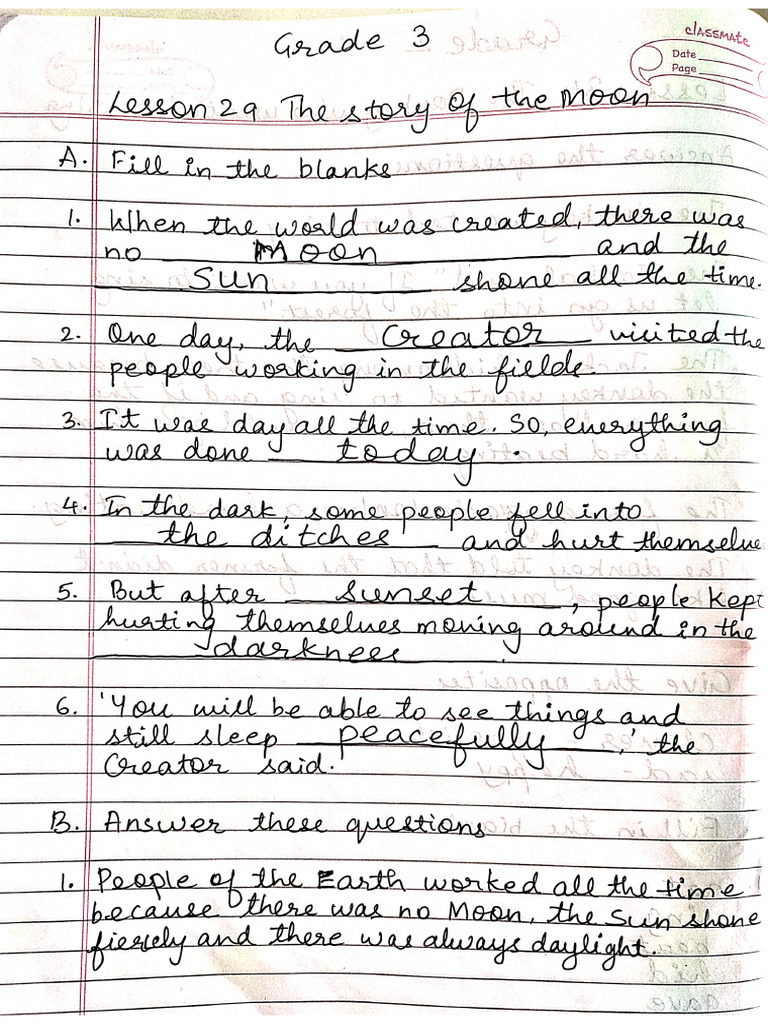 Grade 3
classmate
Date
Page
Lesson 29 The story of the Moon
A. Fill in the blanks
1. When the world was created, there was
no Moon and the
Sun shone all the time.
2. One day, the Creator visited the
people working in the fields.
3. It was day all the time. So, everything
was done today.
4. In the dark, some people fell into
the ditches and hurt themselve
5. But after sunset, people kept
hurting themselves moving around in the
darkness.
6. 'You will be able to see things and
still sleep peacefully,' the
Creator said.
B. Answer these questions
1. People of the Earth worked all the time
because there was no Moon, the Sun shone
fiercely and there was always daylight.